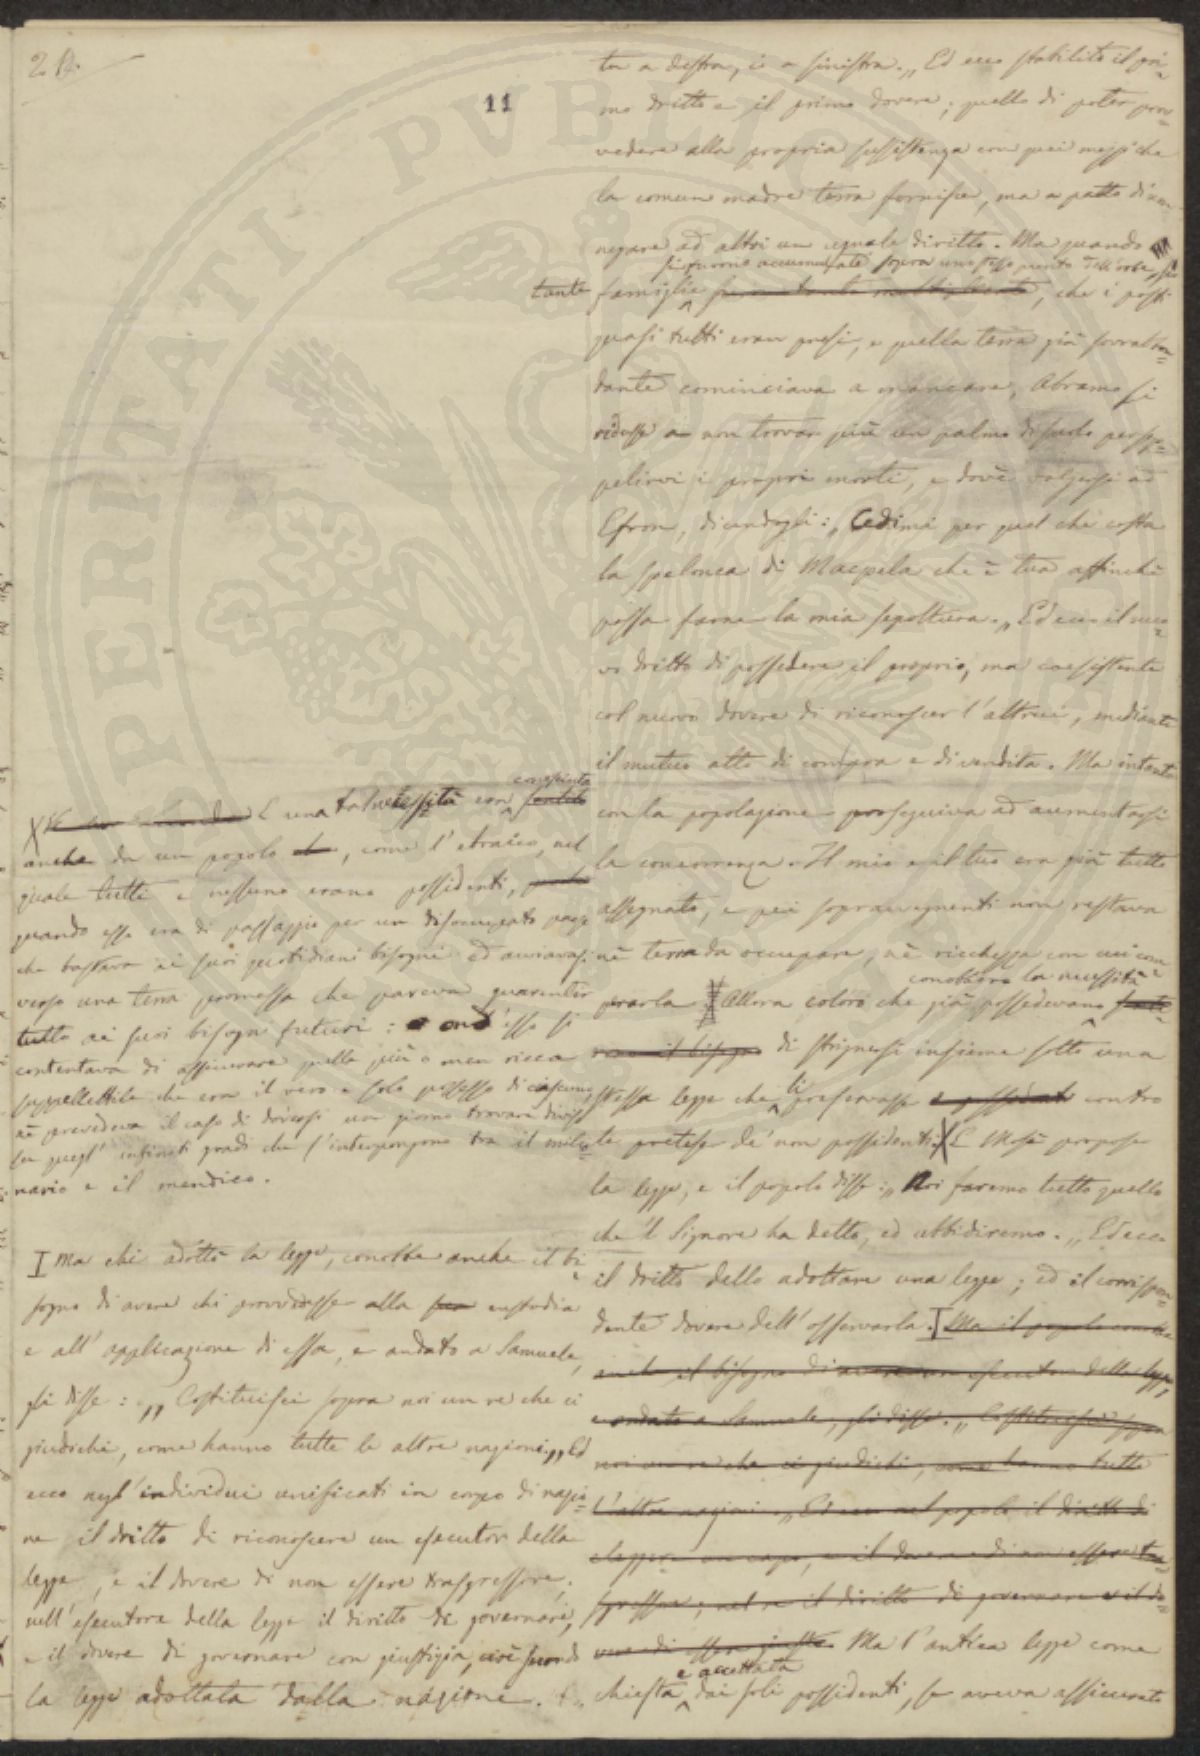 11
ta a destra, io a sinistra. „ Ed ecco stabilito il pri=
mo dritto e il primo dovere; quello di poter prov=
vedere alla propria sussistenza con quei mezzi che
la comun madre terra fornisce, ma a patto di non
negare ad altri un eguale diritto. Ma quando
si furono accumulate sopra uno stesso punto dell'orbe
tante famiglie, che i posti
quasi tutti eran presi, e quella terra già sovrabbon=
dante cominciava a mancare, Abramo si
ridusse a non trovar più un palmo di suolo per sep=
pelirvi i propri morti, e dové volgersi ad
Efron, dicendogli: „ Cedimi per quel che costa
la spelonca di Macpela che è tua affinché
possa farne la mia sepoltura. „ Ed ecco il nuo=
vo dritto di possedere il proprio, ma coesistente
col nuovo dovere di riconoscer l'altrui, mediante
il mutuo atto di compra e di vendita. Ma intanto
con la popolazione proseguiva ad aumentarsi
la concorrenza. Il mio e il tuo era già tutto
assegnato, e pei sopravvegnenti non restava
né terra da occupare, né ricchezza con cui com=
conobbero la necessità
prarla. Allora coloro che già possedevano
sero il bisogno di strignersi insieme sotto una
stessa legge che li preservasse contro
le pretese de' non possidenti. X E Mosè propose
la legge, e il popolo disse: „ Noi faremo tutto quello
che 'l Signore ha detto, ed ubbidiremo. „ Ed ecco
il dritto dello adottare una legge; ed il corrispon=
dente dovere dell'osservarla. I Ma il popolo conobbe
anche il bisogno di avere un esecutore della legge,
e andato a Samuele, gli disse: „ Costituisci sopra
noi un re che ci giudichi, come hanno tutte
l'altre nazioni. „ Ed ecco nel popolo il diritto di
eleggere un capo, e il dovere di non essere tra=
sgressore; nel re il diritto di governare e il do=
vere di esser giusto. Ma l'antica legge come
e accettata
chiesta dai soli possidenti, se aveva assicurato
X E una tal necessità era
conosciuta
anche da un popolo, come l'ebraico, nel
quale tutti e nessuno erano possidenti,
quando esso era di passaggio per un disoccupato paese
che bastava ai suoi quotidiani bisogni ed avviavasi
verso una terra promessa che pareva guarentir
tutto ai suoi bisogni futuri: ond'esso si
contentava di assicurare quella più o men ricca
suppellettile che era il vero e solo possesso di ciascuno,
né prevedeva il caso di doversi un giorno trovare diviso
in quegl'infiniti gradi che s'interpongono tra il milio=
nario e il mendico.
I Ma chi adottò la legge, conobbe anche il bi=
sogno di avere chi provvedesse alla sua custodia
e all'applicazione di essa, e andato a Samuele,
gli disse: „ Costituisci sopra noi un re che ci
giudichi, come hanno tutte le altre nazioni. „ Ed
ecco negl'individui unificati in corpo di nazio=
ne il dritto di riconoscere un esecutor della
legge, e il dovere di non essere trasgressore;
nell'esecutore della legge il diritto di governare,
e il dovere di governare con giustizia, cioè secondo
la legge adottata dalla nazione.